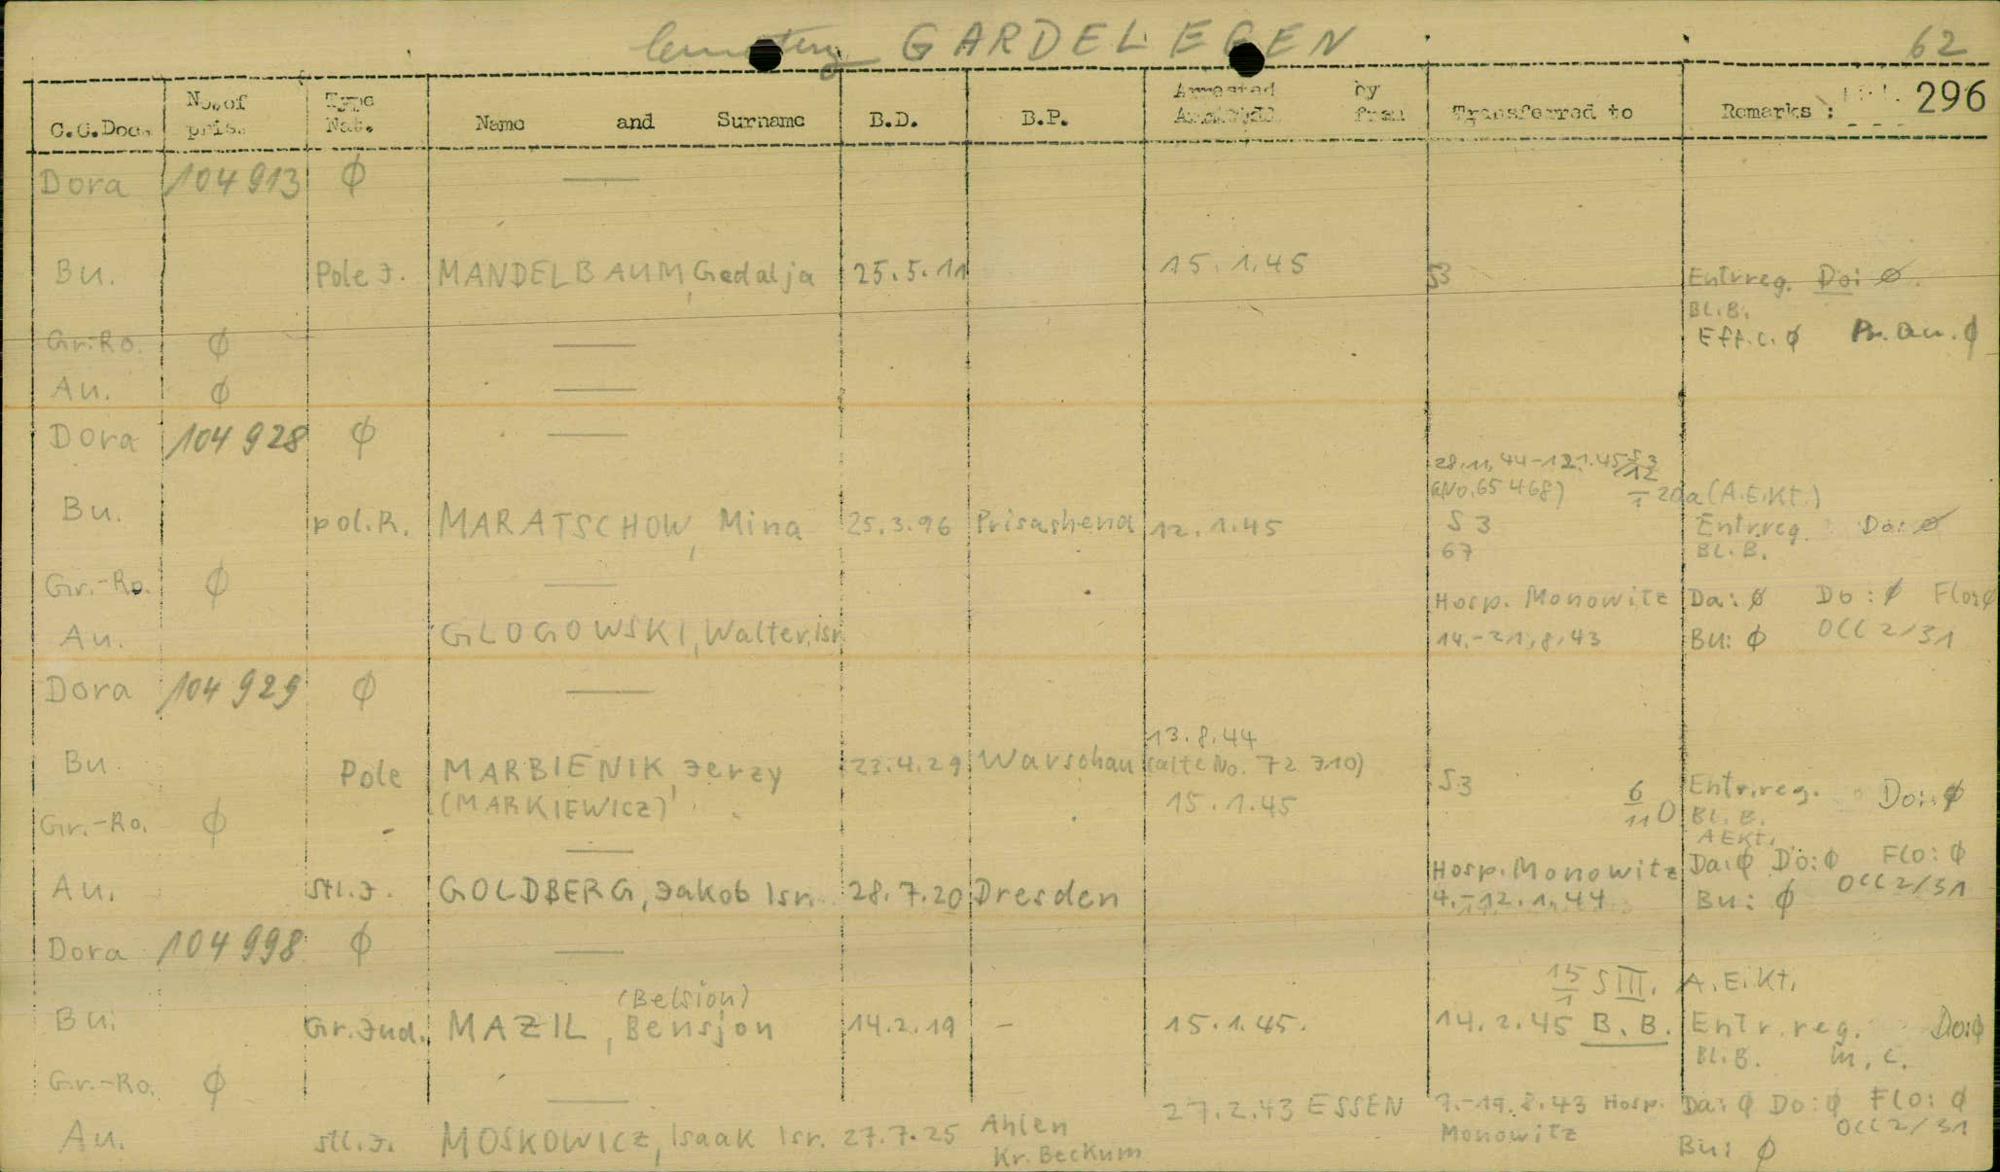 Cemetery GARDELEGEN 62
296
C.C.Doc. No. of pris. Type Nat. Name and Surname B.D. B.P. Arrested by from Transferred to Remarks :
Dora 104 913 ϕ —
Bu. Pole J. MANDELBAUM, Gedalja 25.5.11 15.1.45 S3 Entrreg. Do: ϕ
Bl.B.
Gr.-Ro. ϕ — Eff.c. ϕ Au. ϕ
Au. ϕ —
Dora 104 928 ϕ —
28.11.44-12.1.45 S3
(No. 65 468) 12/1 20a (A.E.Kt.)
Bu. pol.R. MARATSCHOW, Mina 25.3.96 Prisashena 12.1.45 S3 Entr.reg. Do: ϕ
67 Bl.B.
Gr.-Ro. ϕ — Hosp. Monowitz Da: ϕ Do: ϕ Flo: ϕ
Au. GLOGOWSKI, Walter, isr 14.-21.8.43 Bu: ϕ OCC 2/31
Dora 104 929 ϕ —
13.8.44
Bu. Pole MARBIENIK, Jerzy 23.4.29 Warschau (alte No. 72 710) S3 6/11 O Entr.reg. Do: ϕ
(MARKIEWICZ) 15.1.45 Bl.B.
Gr.-Ro. ϕ — A E Kt.
Au. Stl.J. GOLDBERG, Jakob Isr. 28.7.20 Dresden Hosp. Monowitz Da: ϕ Do: ϕ Flo: ϕ
4.-12.1.44 Bu: ϕ OCC 2/31
Dora 104 998 ϕ —
(Belsion) 15/1 S III. A.E.Kt.
Bu. Gr.Jud. MAZIL, Bensjon 14.2.19 – 15.1.45. 14.2.45 B.B. Entr.reg. Do: ϕ
Bl.B. m.c.
Gr.-Ro. ϕ —
Au. stl.J. MOSKOWICZ, Isaak Isr. 27.7.25 Ahlen 27.2.43 ESSEN 7.-19.8.43 Hosp. Da: ϕ Do: ϕ Flo: ϕ
Kr. Beckum Monowitz Bu: ϕ OCC 2/31